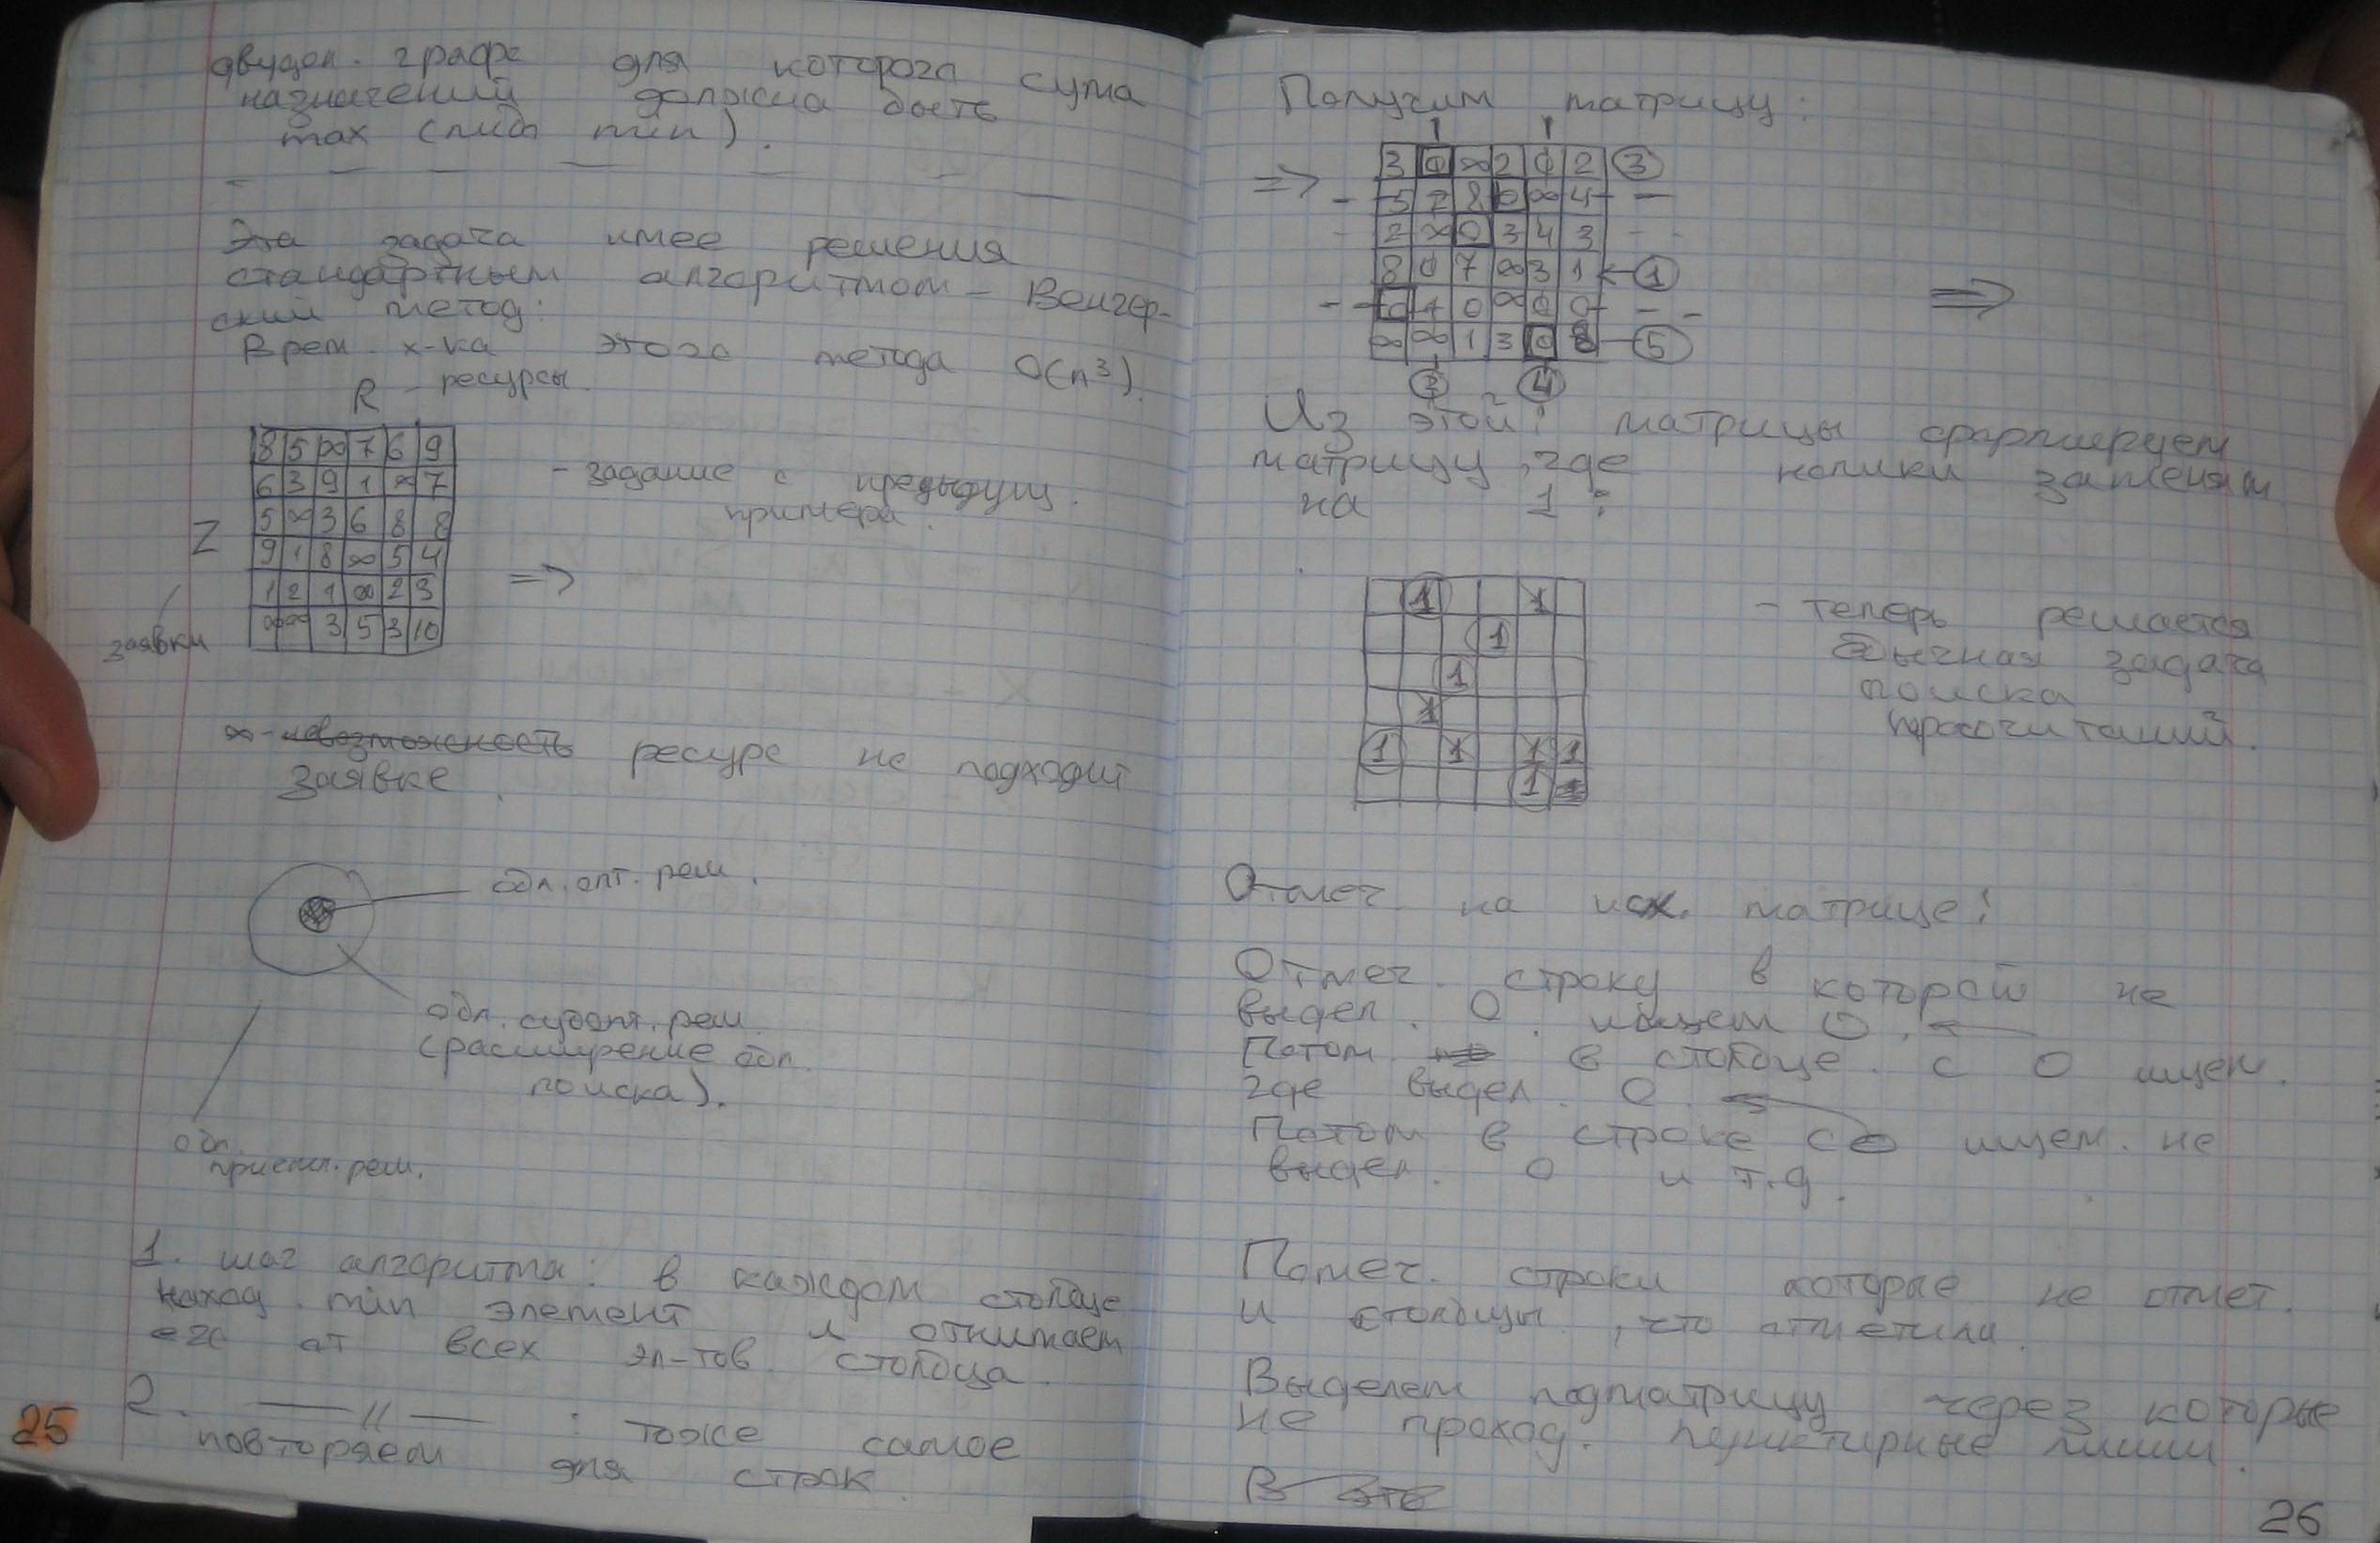 двудол. графе для которого сума
назначений должна быть
max (либо min).
Эта задача имее решения
стандартным алгоритмом - Венгер-
ский метод:
Врем. х-ка этого метода O(n³).
R - ресурсы.
8 5 ∞ 7 6 9
6 3 9 1 ∞ 7
5 ∞ 3 6 8 8
9 1 8 ∞ 5 4
1 2 1 ∞ 2 3
∞ ∞ 3 5 3 10
Z
заявки
- задание с предыдущ.
примера.
=>
∞ - невозможность ресурс не подходит
заявке.
обл. опт. реш.
обл. субопт. реш.
(расширение обл.
поиска).
обл.
приемл. реш.
1. шаг алгоритма: в каждом столбце
наход. min элемент и отнимаем
его от всех эл-тов. столбца.
2. —— // —— : тоже самое
повторяем для строк.
25
Получим матрицу:
=>
3 0 ∞ 2 0 2 ③
5 2 8 0 ∞ 4
2 ∞ 0 3 4 3
8 0 7 ∞ 3 1 ← ①
0 1 0 ∞ 0 0
∞ ∞ 1 3 0 ⑤
② ④
=>
Из этой матрицы сформируем
матрицу, где нолики заменям
на 1:
1 1
1
1
1
1 1 1 1
1
- теперь решается
обычная задача
поиска
Отмеч. на исх. матрице:
Отмеч. строку в которой не
выдел. 0. ищем 0.
Потом в столбце с 0 ищем.
где выдел. 0.
Потом в строке с 0 ищем. не
выдел. 0 и т.д.
Помеч. строки которые не отмет.
и столбцы, что отметили.
Выделем подматрицу через которые
не проход. пунктирные линии.
В это
26